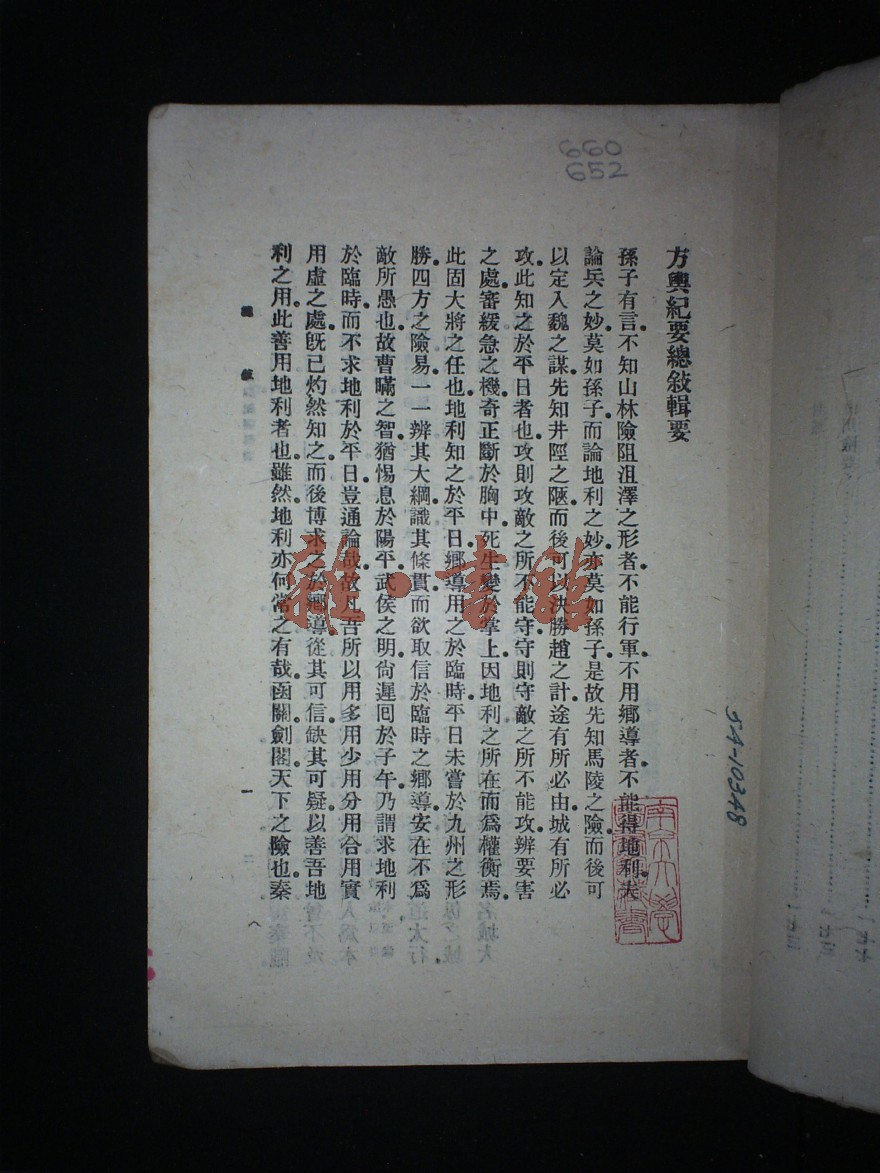 660
652
方輿紀要總敘輯要
孫子有言。不知山林險阻沮澤之形者。不能行軍。不用鄉導者。不能得地利。夫
論兵之妙。莫如孫子。而論地利之妙。亦莫如孫子。是故先知馬陵之險。而後可
以定入魏之謀。先知井陘之陿。而後可以決勝趙之計。途有所必由。城有所必
攻。此知之於平日者也。攻則攻敵之所不能守。守則守敵之所不能攻。辨要害
之處。審緩急之機。奇正斷於胸中。死生變於掌上。因地利之所在。而爲權衡焉。
此固大將之任也。地利知之於平日。鄉導用之於臨時。平日未嘗於九州之形
勝。四方之險易。一一辨其大綱。識其條貫。而欲取信於臨時之鄉導。安在不爲
敵所愚也。故曹瞞之智。猶惕息於陽平。武侯之明。尙遲回於子午。乃謂求地利
於臨時。而不求地利於平日。豈通論哉。故凡吾所以用多用少。用分用合。用實
用虛之處。旣已灼然知之。而後博求之於鄉導。從其可信。缺其可疑。以善吾地
利之用。此善用地利者也。雖然。地利亦何常之有哉。函關劍閣。天下之險也。秦
總敘
一
雜·書館
54-10348